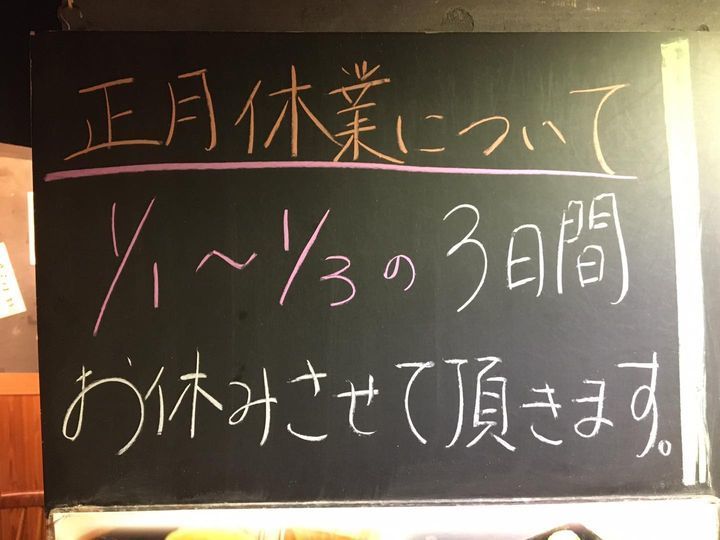 正月休業について
1/1～1/3の3日間
お休みさせて頂きます。